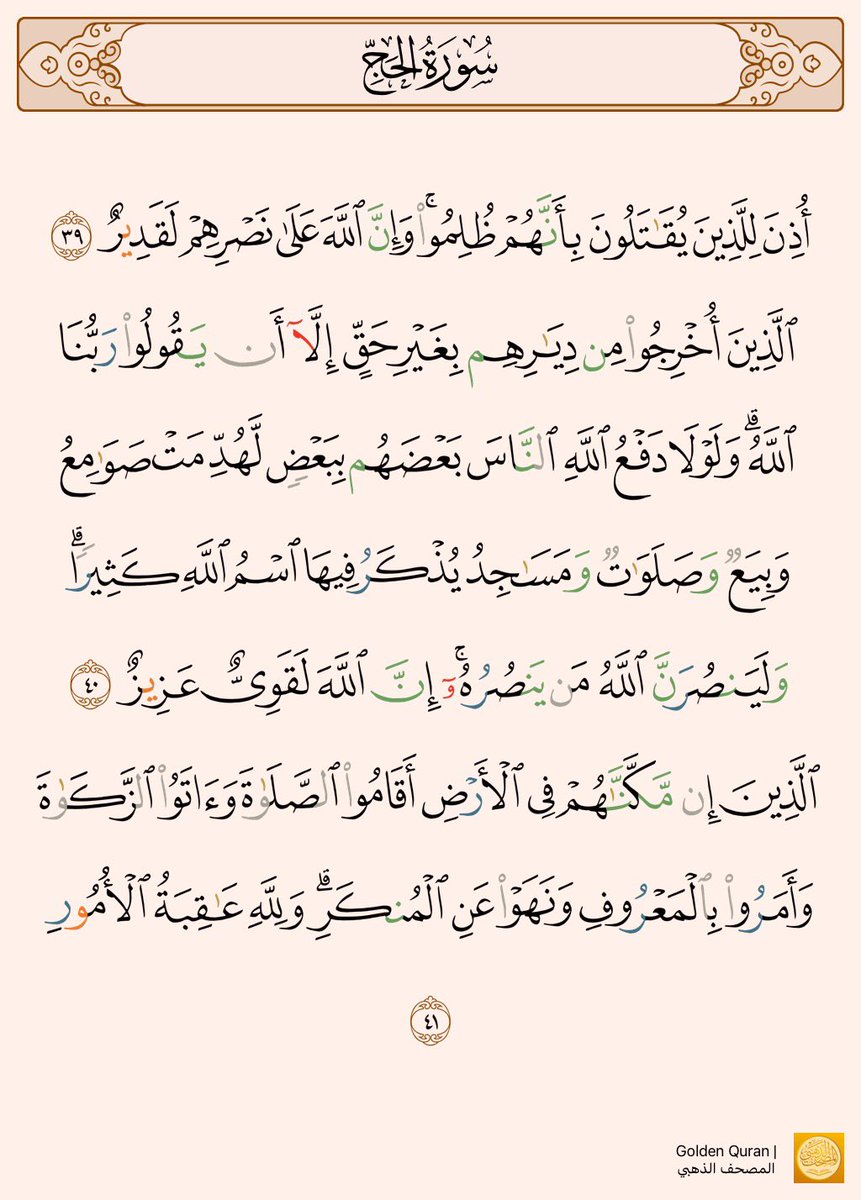 سُورَةُ الحَجِّ
أُذِنَ لِلَّذِينَ يُقَـٰتَلُونَ بِأَنَّهُمۡ ظُلِمُواْۚ وَإِنَّ ٱللَّهَ عَلَىٰ نَصۡرِهِمۡ لَقَدِيرٌ ٣٩
ٱلَّذِينَ أُخۡرِجُواْ مِن دِيَـٰرِهِم بِغَيۡرِ حَقٍّ إِلَّآ أَن يَقُولُواْ رَبُّنَا
ٱللَّهُۗ وَلَوۡلَا دَفۡعُ ٱللَّهِ ٱلنَّاسَ بَعۡضَهُم بِبَعۡضٍ لَّهُدِّمَتۡ صَوَٰمِعُ
وَبِيَعٌ وَصَلَوَٰتٌ وَمَسَـٰجِدُ يُذۡكَرُ فِيهَا ٱسۡمُ ٱللَّهِ كَثِيرًاۗ
وَلَيَنصُرَنَّ ٱللَّهُ مَن يَنصُرُهُۥٓۚ إِنَّ ٱللَّهَ لَقَوِيٌّ عَزِيزٌ ٤٠
ٱلَّذِينَ إِن مَّكَّنَّـٰهُمۡ فِي ٱلۡأَرۡضِ أَقَامُواْ ٱلصَّلَوٰةَ وَءَاتَوُاْ ٱلزَّكَوٰةَ
وَأَمَرُواْ بِٱلۡمَعۡرُوفِ وَنَهَوۡاْ عَنِ ٱلۡمُنكَرِۗ وَلِلَّهِ عَـٰقِبَةُ ٱلۡأُمُورِ
٤١
Golden Quran |
المصحف الذهبي